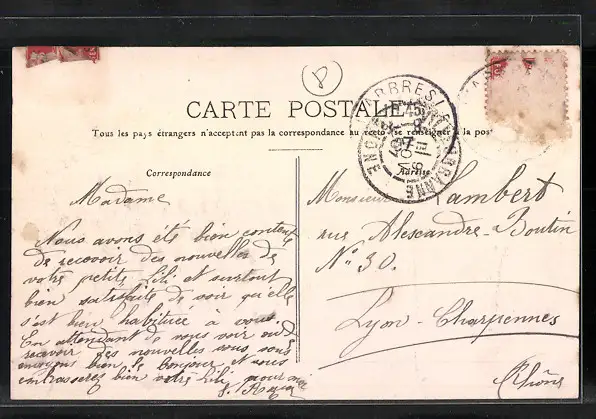 CARTE POSTALE
Tous les pays étrangers n'acceptent pas la correspondance au recto - se renseigner à la pos
Correspondance
Adresse
Madame
Nous avons été bien contents
de recevoir des nouvelles de
votre petite Lili et surtout
bien satisfaite de voir qu'elle
s'est bien habituée à vous.
En attendant de vous voir ou de
recevoir des nouvelles vous
envoyons bien le bonjour et vous
embrasserez bien votre Lili pour moi
Monsieur Lambert
rue Alescandre-Boutin
N° 30.
Lyon-Charpennes
Rhône